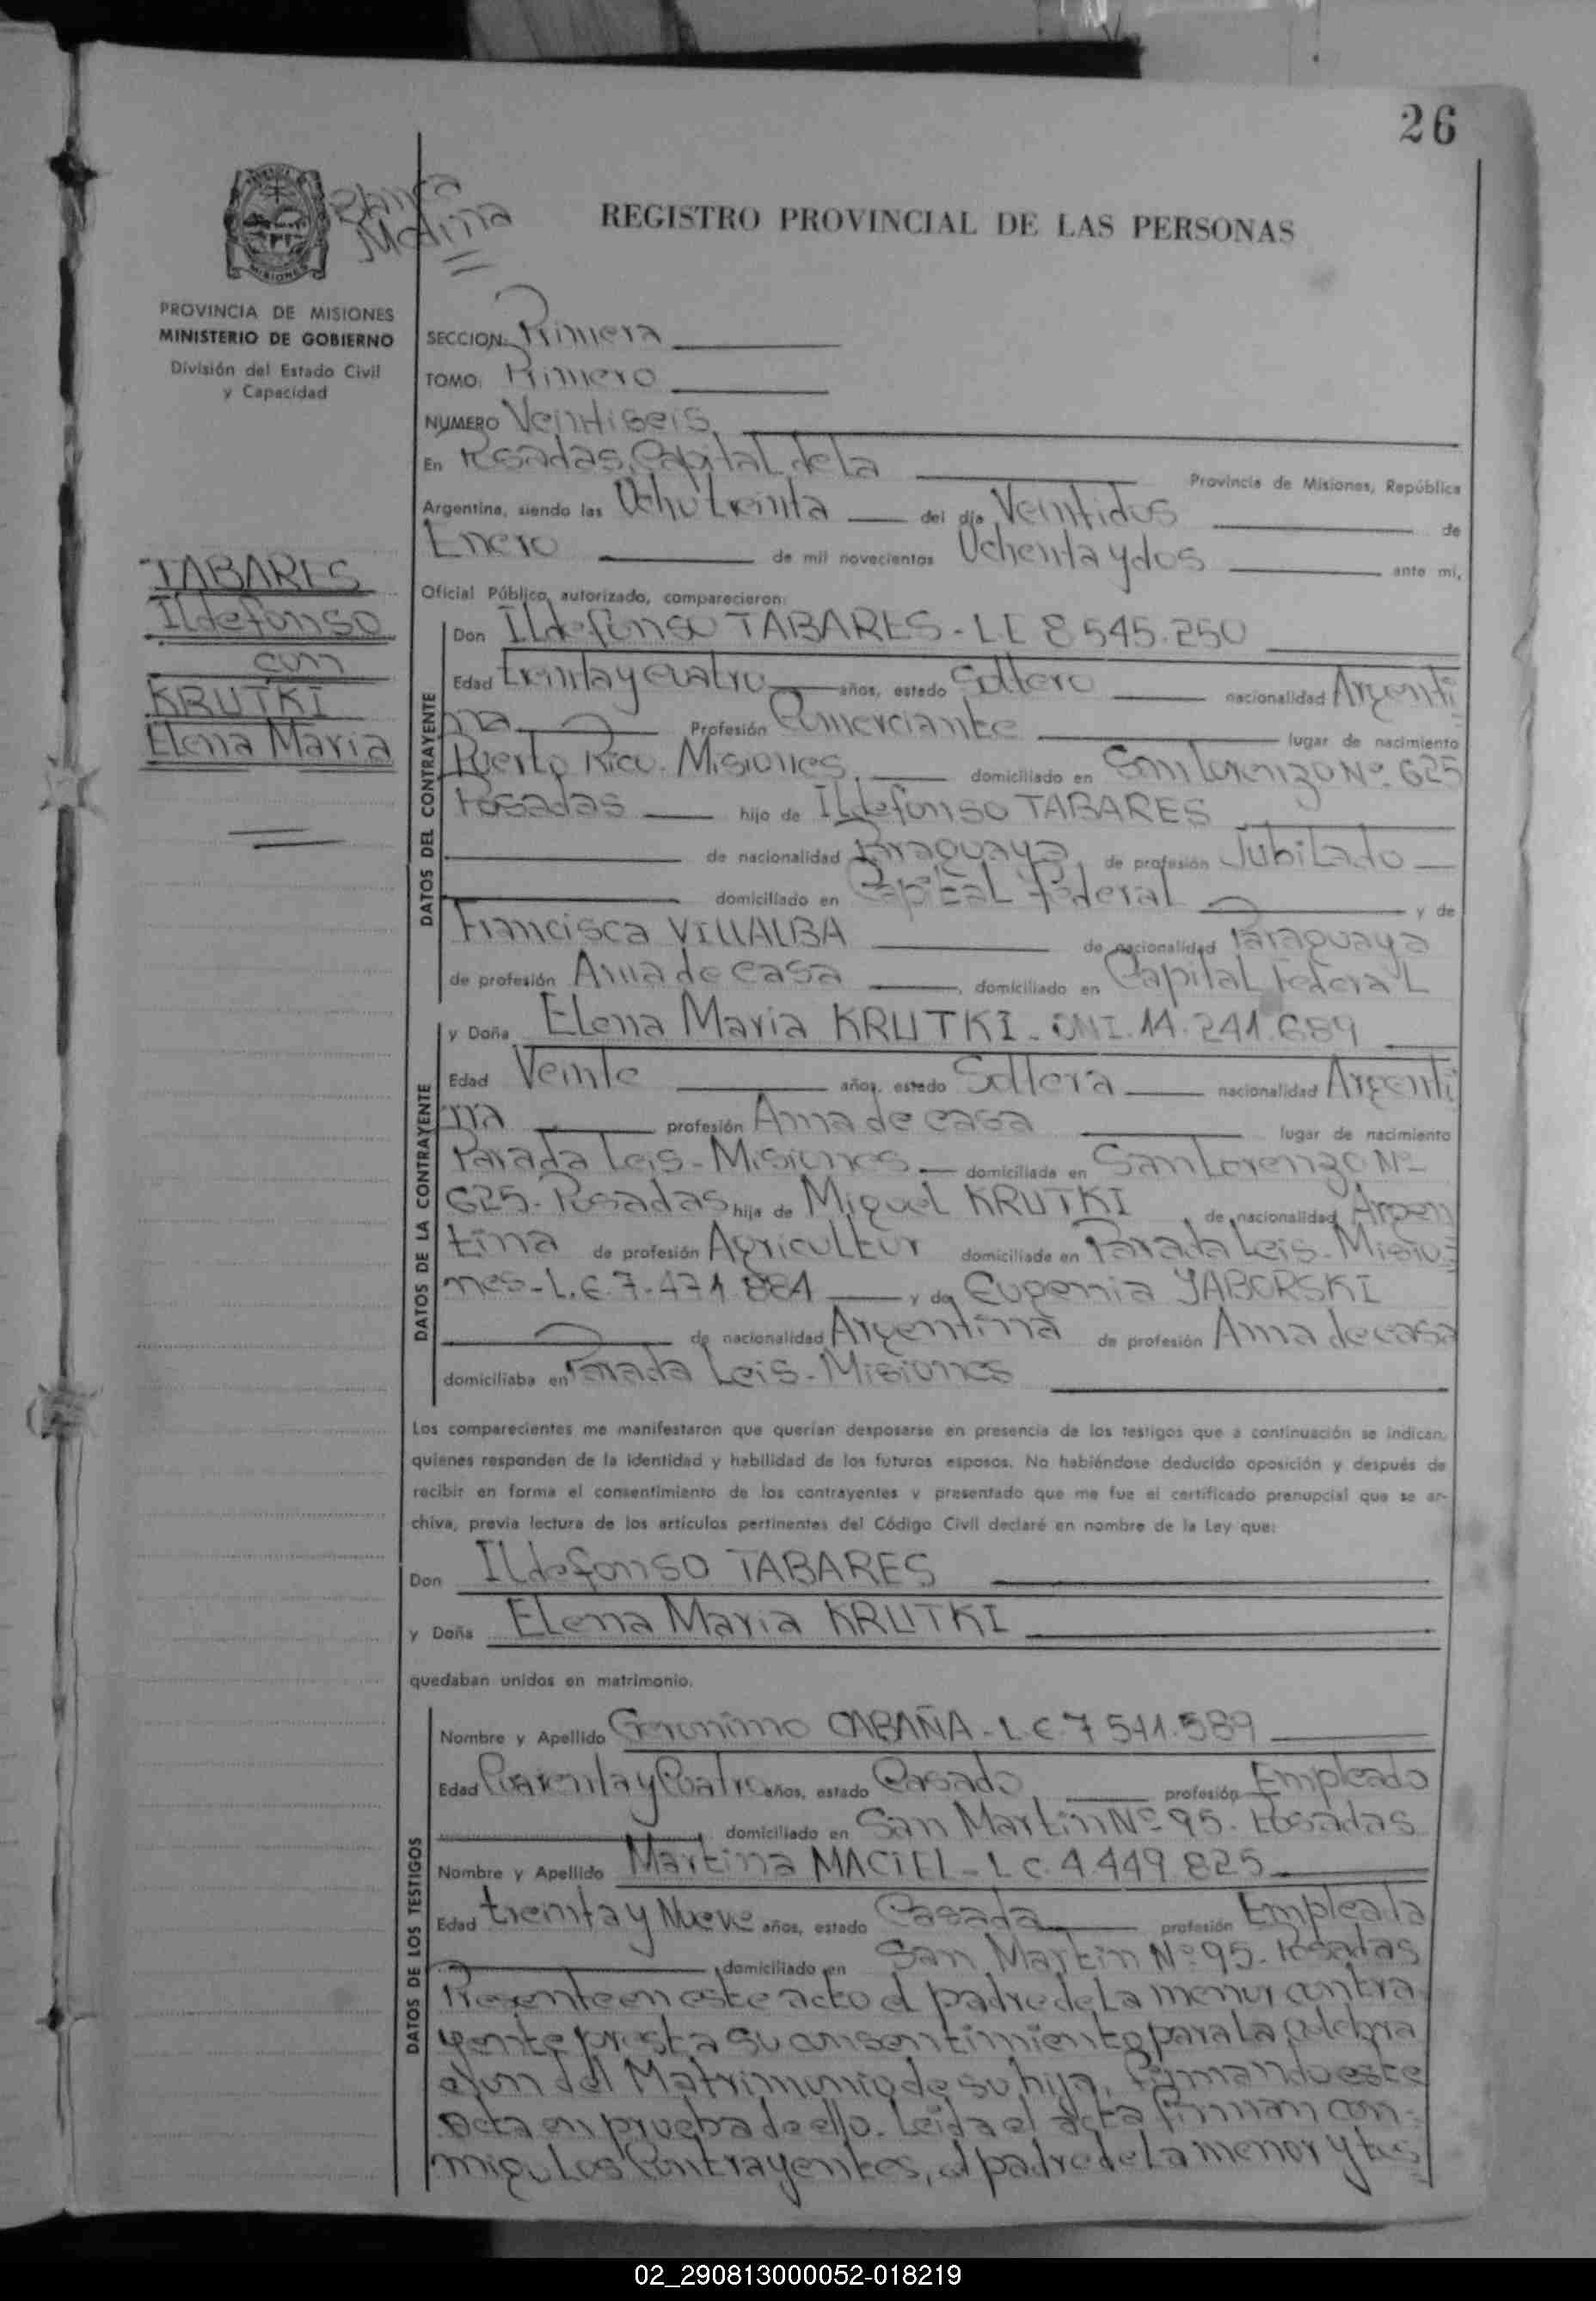 26
Blanca
Molina
REGISTRO PROVINCIAL DE LAS PERSONAS
MISIONES
PROVINCIA DE MISIONES
MINISTERIO DE GOBIERNO
División del Estado Civil
y Capacidad
TABARES
Ildefonso
con
KRUTKI
Elena Maria
SECCION: Primera
TOMO: Primero
NUMERO Veintiseis
En Posadas, Capital de la Provincia de Misiones, República
Argentina, siendo las Ocho treinta del día Veintidos de
Enero de mil novecientos Ochenta y dos ante mí,
Oficial Público, autorizado, comparecieron:
DATOS DEL CONTRAYENTE
Don Ildefonso TABARES - LE 8 545.250
Edad treinta y cuatro años, estado Soltero nacionalidad Argenti
na Profesión Comerciante lugar de nacimiento
Puerto Rico. Misiones. domiciliado en San Lorenzo Nº 625
Posadas hijo de Ildefonso TABARES
de nacionalidad Paraguaya de profesión Jubilado
domiciliado en Capital Federal y de
Francisca VILLALBA de nacionalidad Paraguaya
de profesión Ama de casa, domiciliado en Capital Federal
DATOS DE LA CONTRAYENTE
y Doña Elena Maria KRUTKI - DNI. 14.241.689
Edad Veinte años, estado Soltera nacionalidad Argenti
na profesión Ama de casa lugar de nacimiento
Parada Leis - Misiones domiciliada en San Lorenzo Nº
625 - Posadas hija de Miguel KRUTKI de nacionalidad Argen
tina de profesión Agricultor domiciliado en Parada Leis - Misio
nes - L.E. 7.471.884 y de Eugenia YABORSKI
de nacionalidad Argentina de profesión Ama de casa
domiciliaba en Parada Leis - Misiones
Los comparecientes me manifestaron que querían desposarse en presencia de los testigos que a continuación se indican,
quienes responden de la identidad y habilidad de los futuros esposos. No habiéndose deducido oposición y después de
recibir en forma el consentimiento de los contrayentes y presentado que me fue el certificado prenupcial que se ar-
chiva, previa lectura de los artículos pertinentes del Código Civil declaré en nombre de la Ley que:
Don Ildefonso TABARES
y Doña Elena Maria KRUTKI
quedaban unidos en matrimonio.
DATOS DE LOS TESTIGOS
Nombre y Apellido Geronimo CABAÑA - L.E 7 541.589
Edad Cuarenta y Cuatro años, estado Casado, profesión Empleado
domiciliado en San Martin Nº 95. Posadas
Nombre y Apellido Martina MACIEL - L C. 4.449.825
Edad treinta y Nueve años, estado Casada profesión Empleada
domiciliado en San Martin Nº 95. Posadas
Presente en este acto el padre de la menor contra
yente presta su consentimiento para la celebra
cion del Matrimonio de su hija, firmando este
acta en prueba de ello. Leida el acta firman con-
migo Los Contrayentes, el padre de la menor y tes
02_290813000052-018219